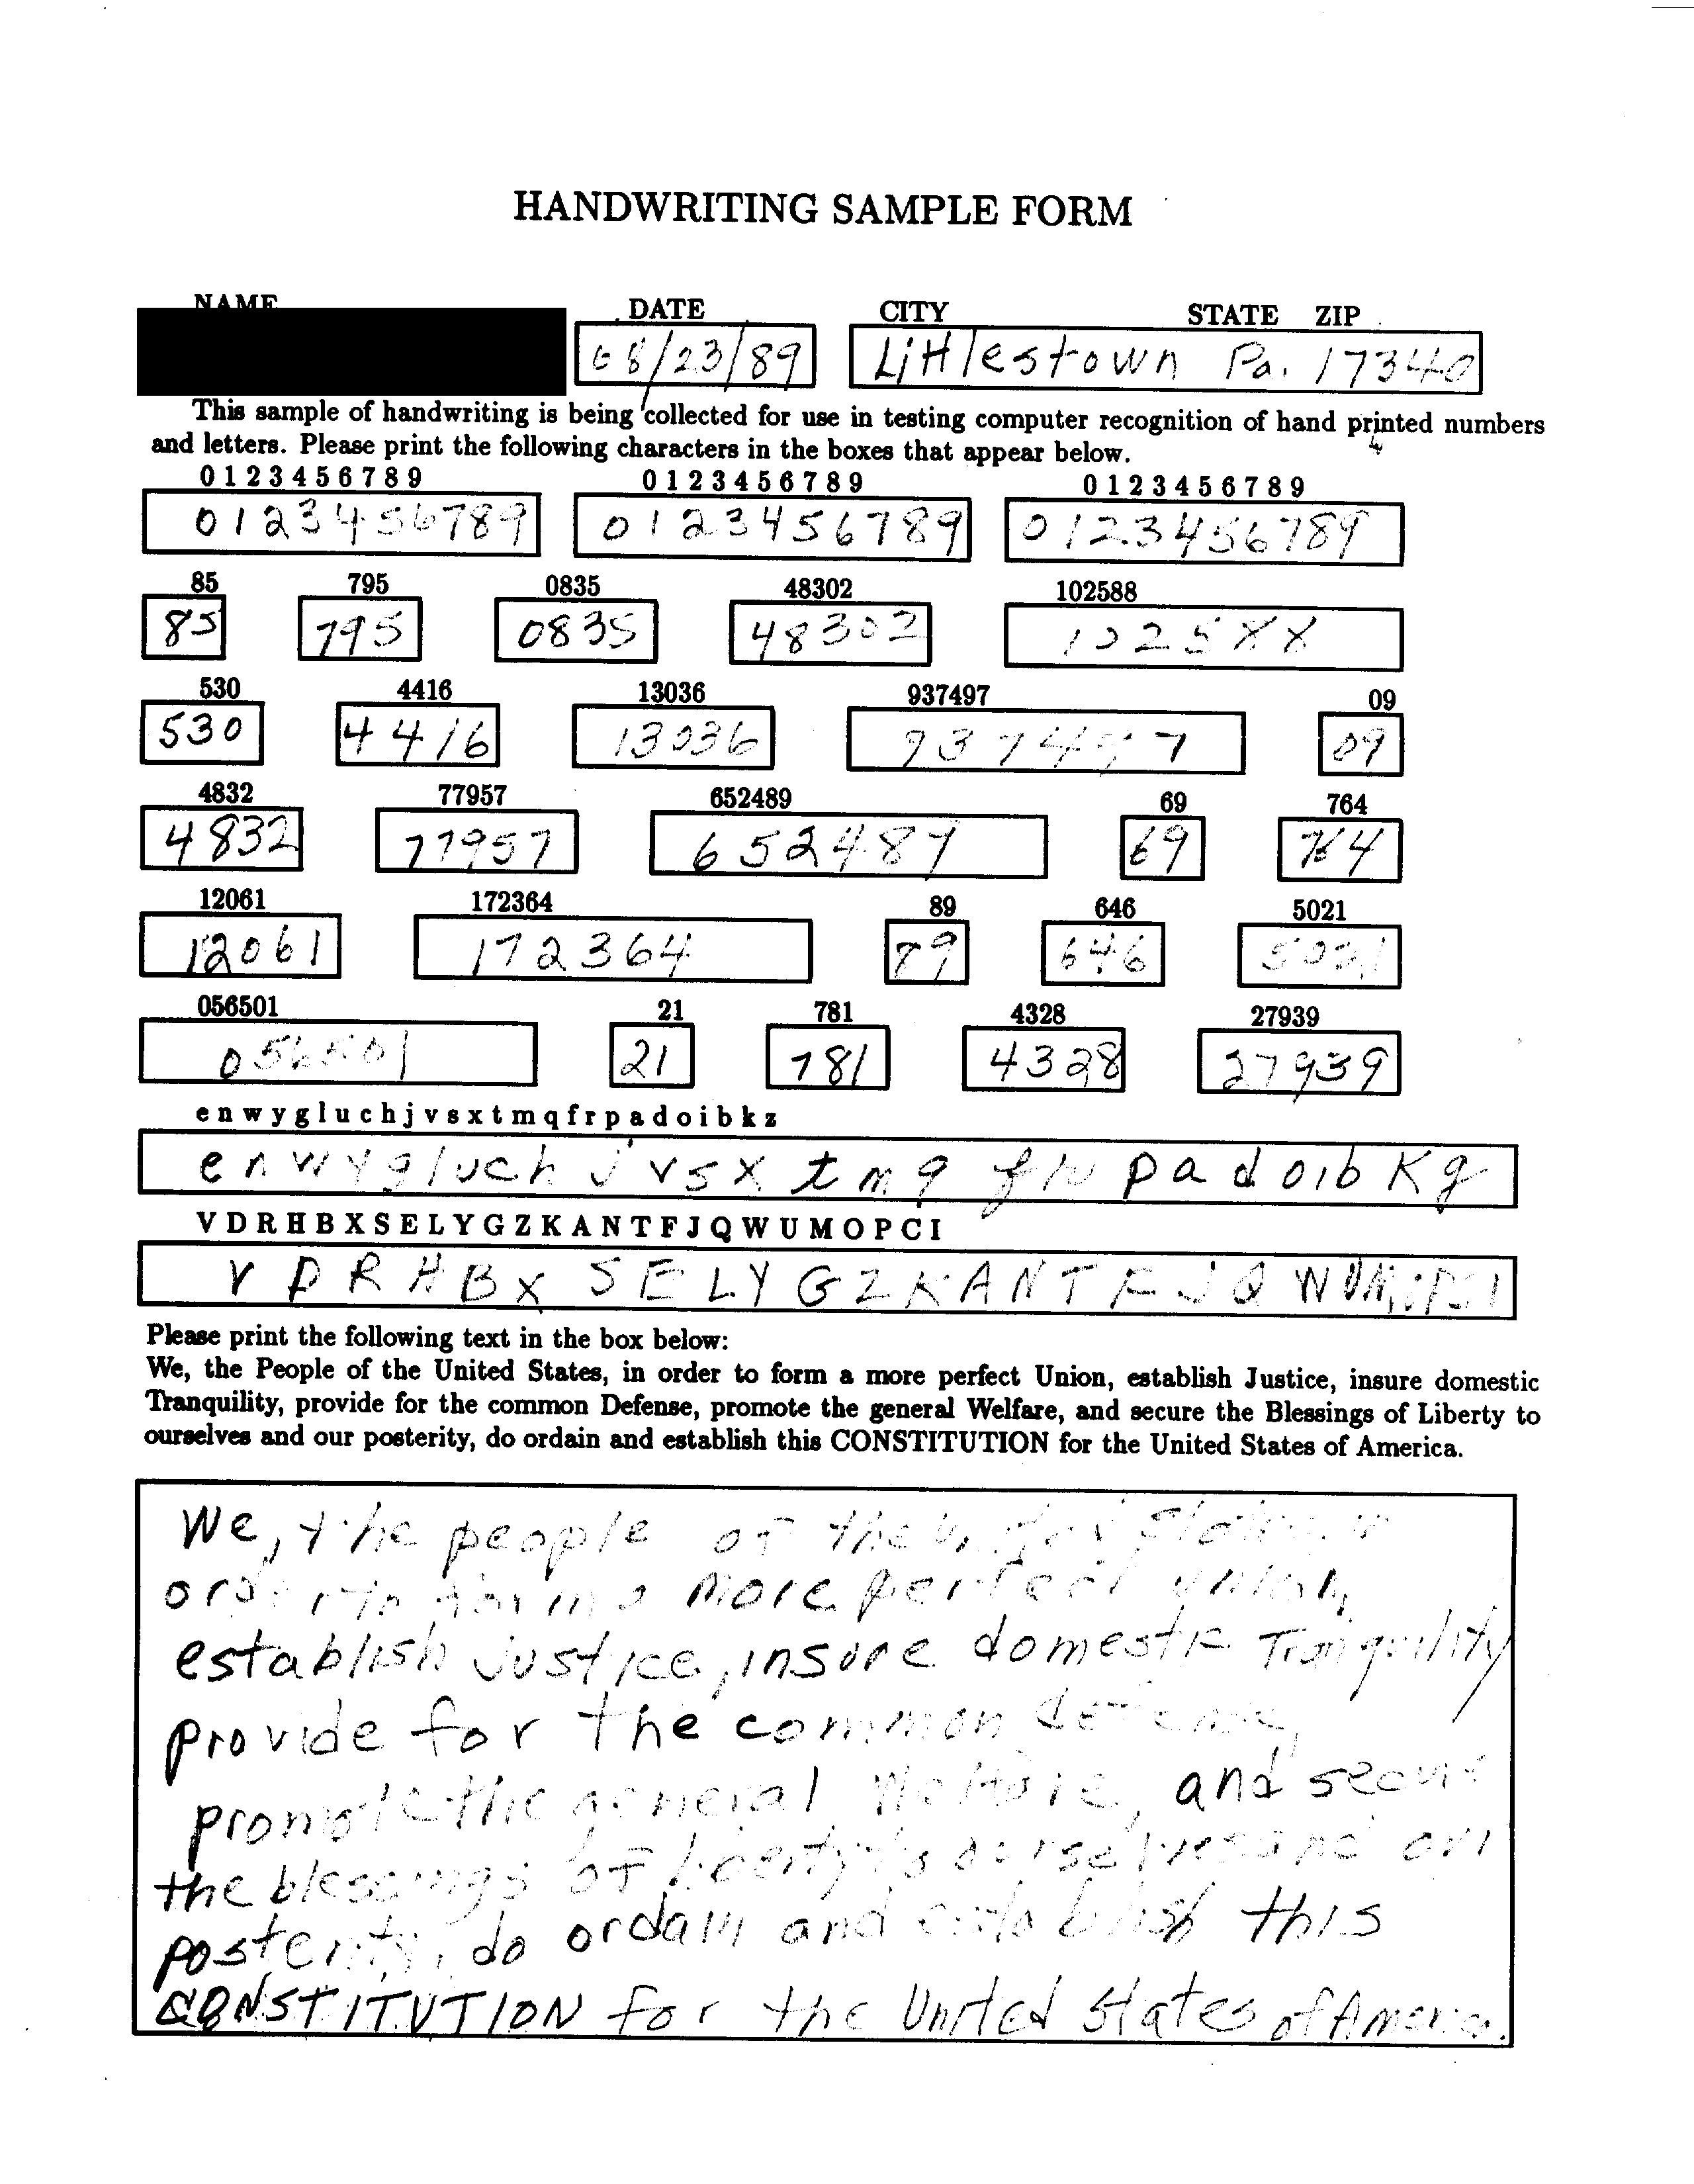 HANDWRITING SAMPLE FORM
NAME DATE CITY STATE ZIP
08/23/89 Littlestown Pa. 17340
This sample of handwriting is being collected for use in testing computer recognition of hand printed numbers
and letters. Please print the following characters in the boxes that appear below.
0 1 2 3 4 5 6 7 8 9 0 1 2 3 4 5 6 7 8 9 0 1 2 3 4 5 6 7 8 9
0123456789 0123456789 0123456789
85 795 0835 48302 102588
85 795 0835 48302 102588
530 4416 13036 937497 09
530 4416 13036 937497 09
4832 77957 652489 69 764
4832 77957 652489 69 764
12061 172364 89 646 5021
12061 172364 89 646 5021
056501 21 781 4328 27939
056501 21 781 4328 27939
e n w y g l u c h j v s x t m q f r p a d o i b k z
e n w y g l u c h j v s x t m q f r p a d o i b K z
V D R H B X S E L Y G Z K A N T F J Q W U M O P C I
V D R H B X S E L Y G Z K A N T F J Q W U M O P C I
Please print the following text in the box below:
We, the People of the United States, in order to form a more perfect Union, establish Justice, insure domestic
Tranquility, provide for the common Defense, promote the general Welfare, and secure the Blessings of Liberty to
ourselves and our posterity, do ordain and establish this CONSTITUTION for the United States of America.
We, the people of the United States, in
order to form a more perfect union,
establish justice, insure domestic Tranquility,
provide for the common defense,
promote the general Welfare, and secure
the blessings of Liberty to ourselves and our
posterity, do ordain and establish this
CONSTITUTION for the United States of America.